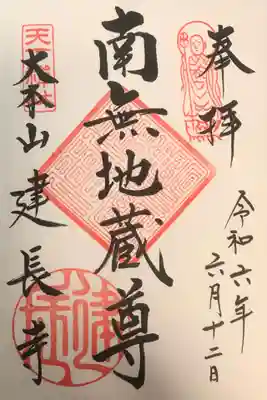 奉拝
令和六年
六月十二日
南無地蔵尊
大本山 建長寺